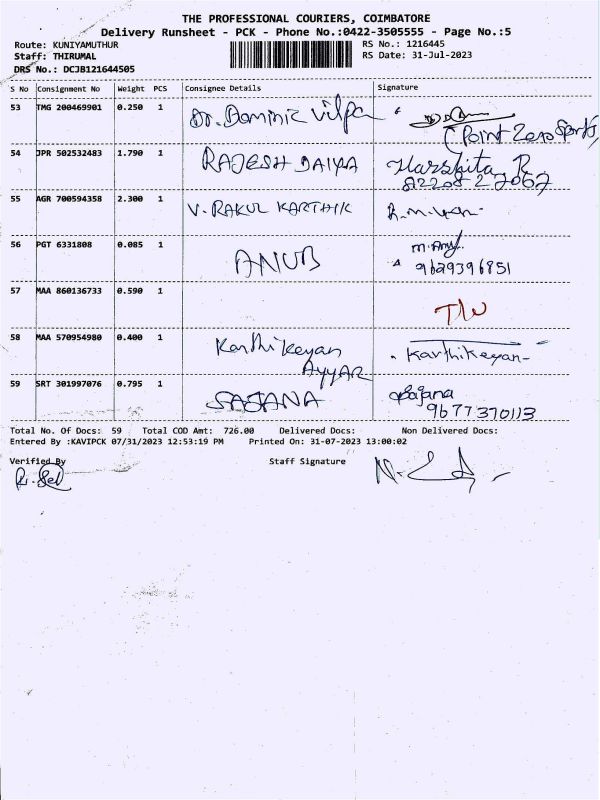 THE PROFESSIONAL COURIERS, COIMBATORE
Delivery Runsheet - PCK - Phone No.:0422-3505555 - Page No.:5
Route: KUNIYAMUTHUR RS No.: 1216445
Staff: THIRUMAL RS Date: 31-Jul-2023
DRS No.: DCJB121644505
S No Consignment No Weight PCS Consignee Details Signature
53 TMG 200469901 0.250 1 Dr. Dominic
(Point Zero Sports)
54 JPR 502532483 1.790 1 RAJESH DAIYA Harshita R
82208 27067
55 AGR 700594358 2.300 1 V. RAKUL KARTHIK
56 PGT 6331808 0.085 1 ANUB
9629396851
57 MAA 860136733 0.590 1
58 MAA 570954980 0.400 1 Karthikeyan Karthikeyan
AYYAR
59 SRT 301997076 0.795 1 SAJANA Sajana
9677370113
Total No. Of Docs: 59 Total COD Amt: 726.00 Delivered Docs: Non Delivered Docs:
Entered By :KAVIPCK 07/31/2023 12:53:19 PM Printed On: 31-07-2023 13:00:02
Verified By Staff Signature